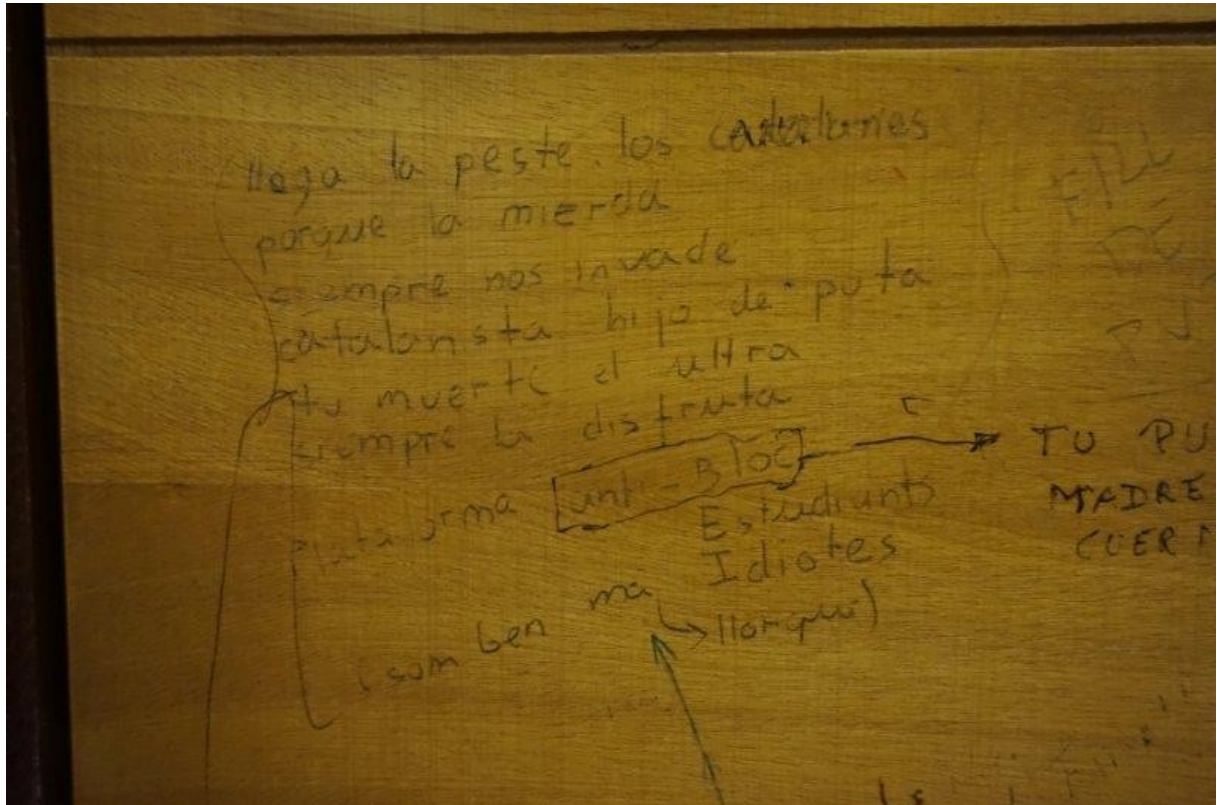 llega la peste. los catalanes
porque la mierda
siempre nos invade
catalanista hijo de puta
tu muerte el ultra
siempre la disfruta
Plataforma anti-Bloc
Estudiants
Idiotes
(som ben ma
llorquí)
FILL
DE
TU PU
MADRE